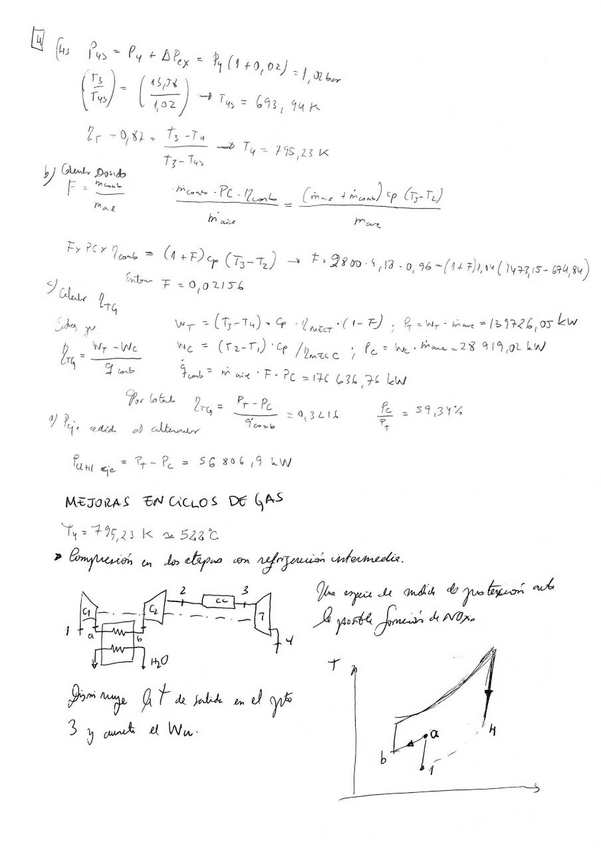 4
P4s = P4 + ΔPex = P4 (1+0,02) = 1,02 bar
(T3/T4s) = (13,78/1,02) → T4s = 693,94 K
ηT = 0,87 = (T3-T4)/(T3-T4s) → T4 = 795,23 K
b) Calcular Dosado
F = mcomb/maire (ṁcomb · PC · ηcomb)/ṁaire = ((ṁaire + ṁcomb) cp (T3-T2))/ṁaire
F x PC x ηcomb = (1+F) cp (T3-T2) → F · 9800 · 4,18 · 0,96 = (1+F) 1,04 (1473,15 - 674,84)
Entonces F = 0,02156
c) Calcular ηTG
WT = (T3-T4) · cp · ηmec T · (1-F) ; PT = WT · ṁaire =
WC = (T2-T1) · cp / ηmec C ; PC = WC · ṁaire =
ηTG = (WT - WC)/q̇comb
q̇comb = ṁaire · F · PC = 176 636,76 kW
Por lo tanto ηTG = (PT - PC)/q̇comb = 0,3216 PC/PT = 59,34%
d) Peje cedida al alternador
Pútil eje = PT - PC = 56 806,9 kW
MEJORAS EN CICLOS DE GAS
T4 = 795,23 K ≈ 522°C
Compresión en dos etapas con refrigeración intermedia.
C1 C2 2 CC 3 T
1 a b 4
H2O
Una especie de medida de protección ante
la posible formación de NOx.
Disminuye la T de salida en el pto
3 y aumenta el Wu.
T
a
b
1
4